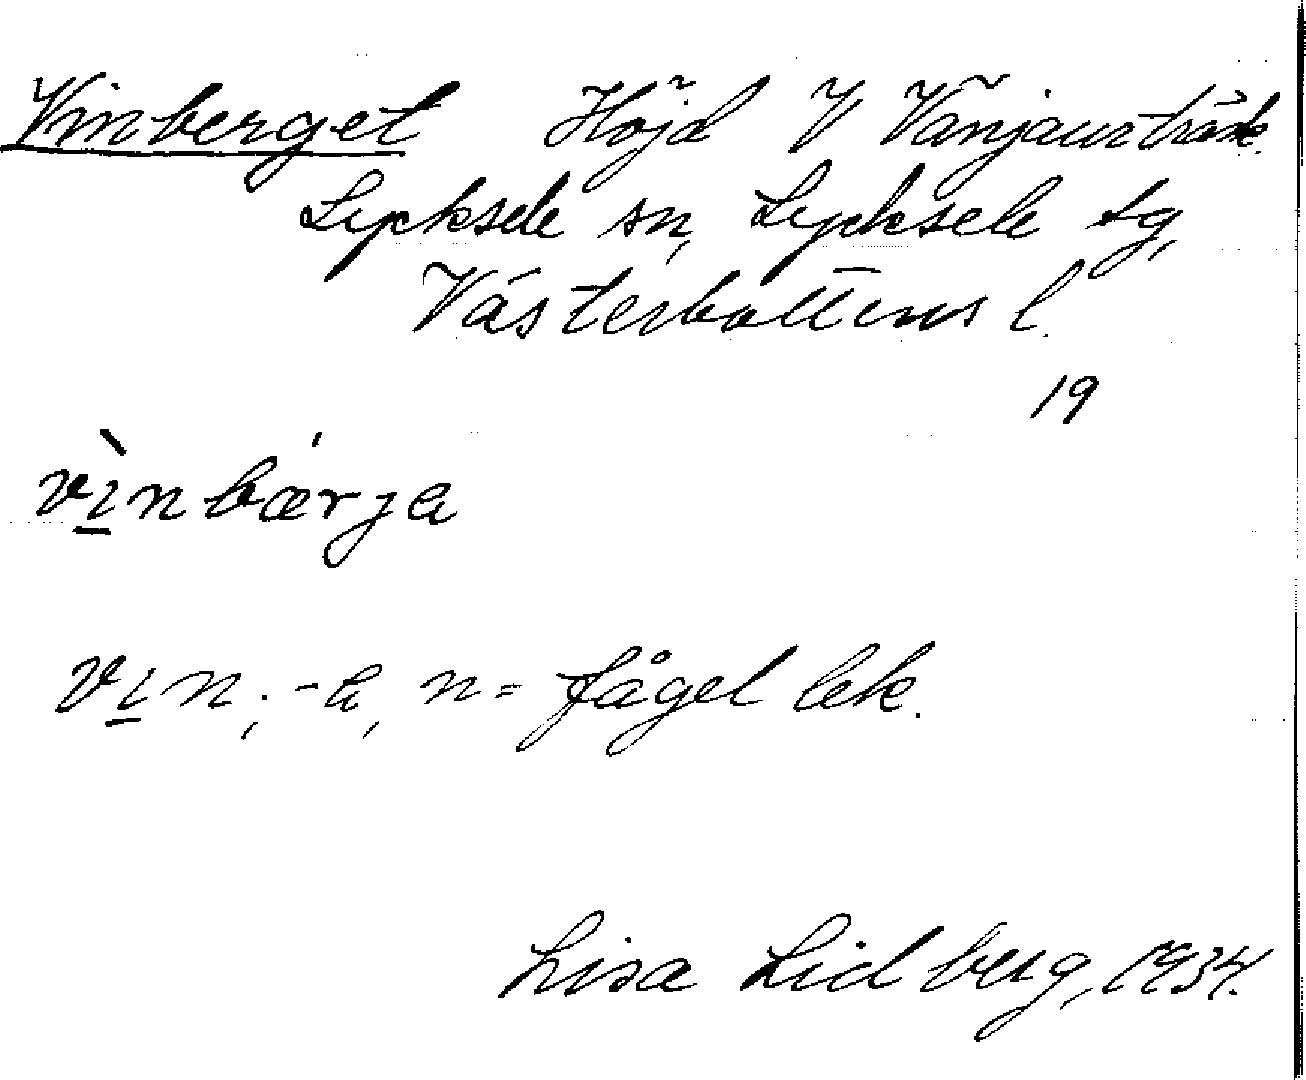 Vinberget Höjd V Vänjaurträsk.
Lycksele sn, Lycksele tg,
Västerbottens l.
19
vı̠̀nbærja
vı̠n, -a, n = fågellek.
Lisa Lidberg, 1934.